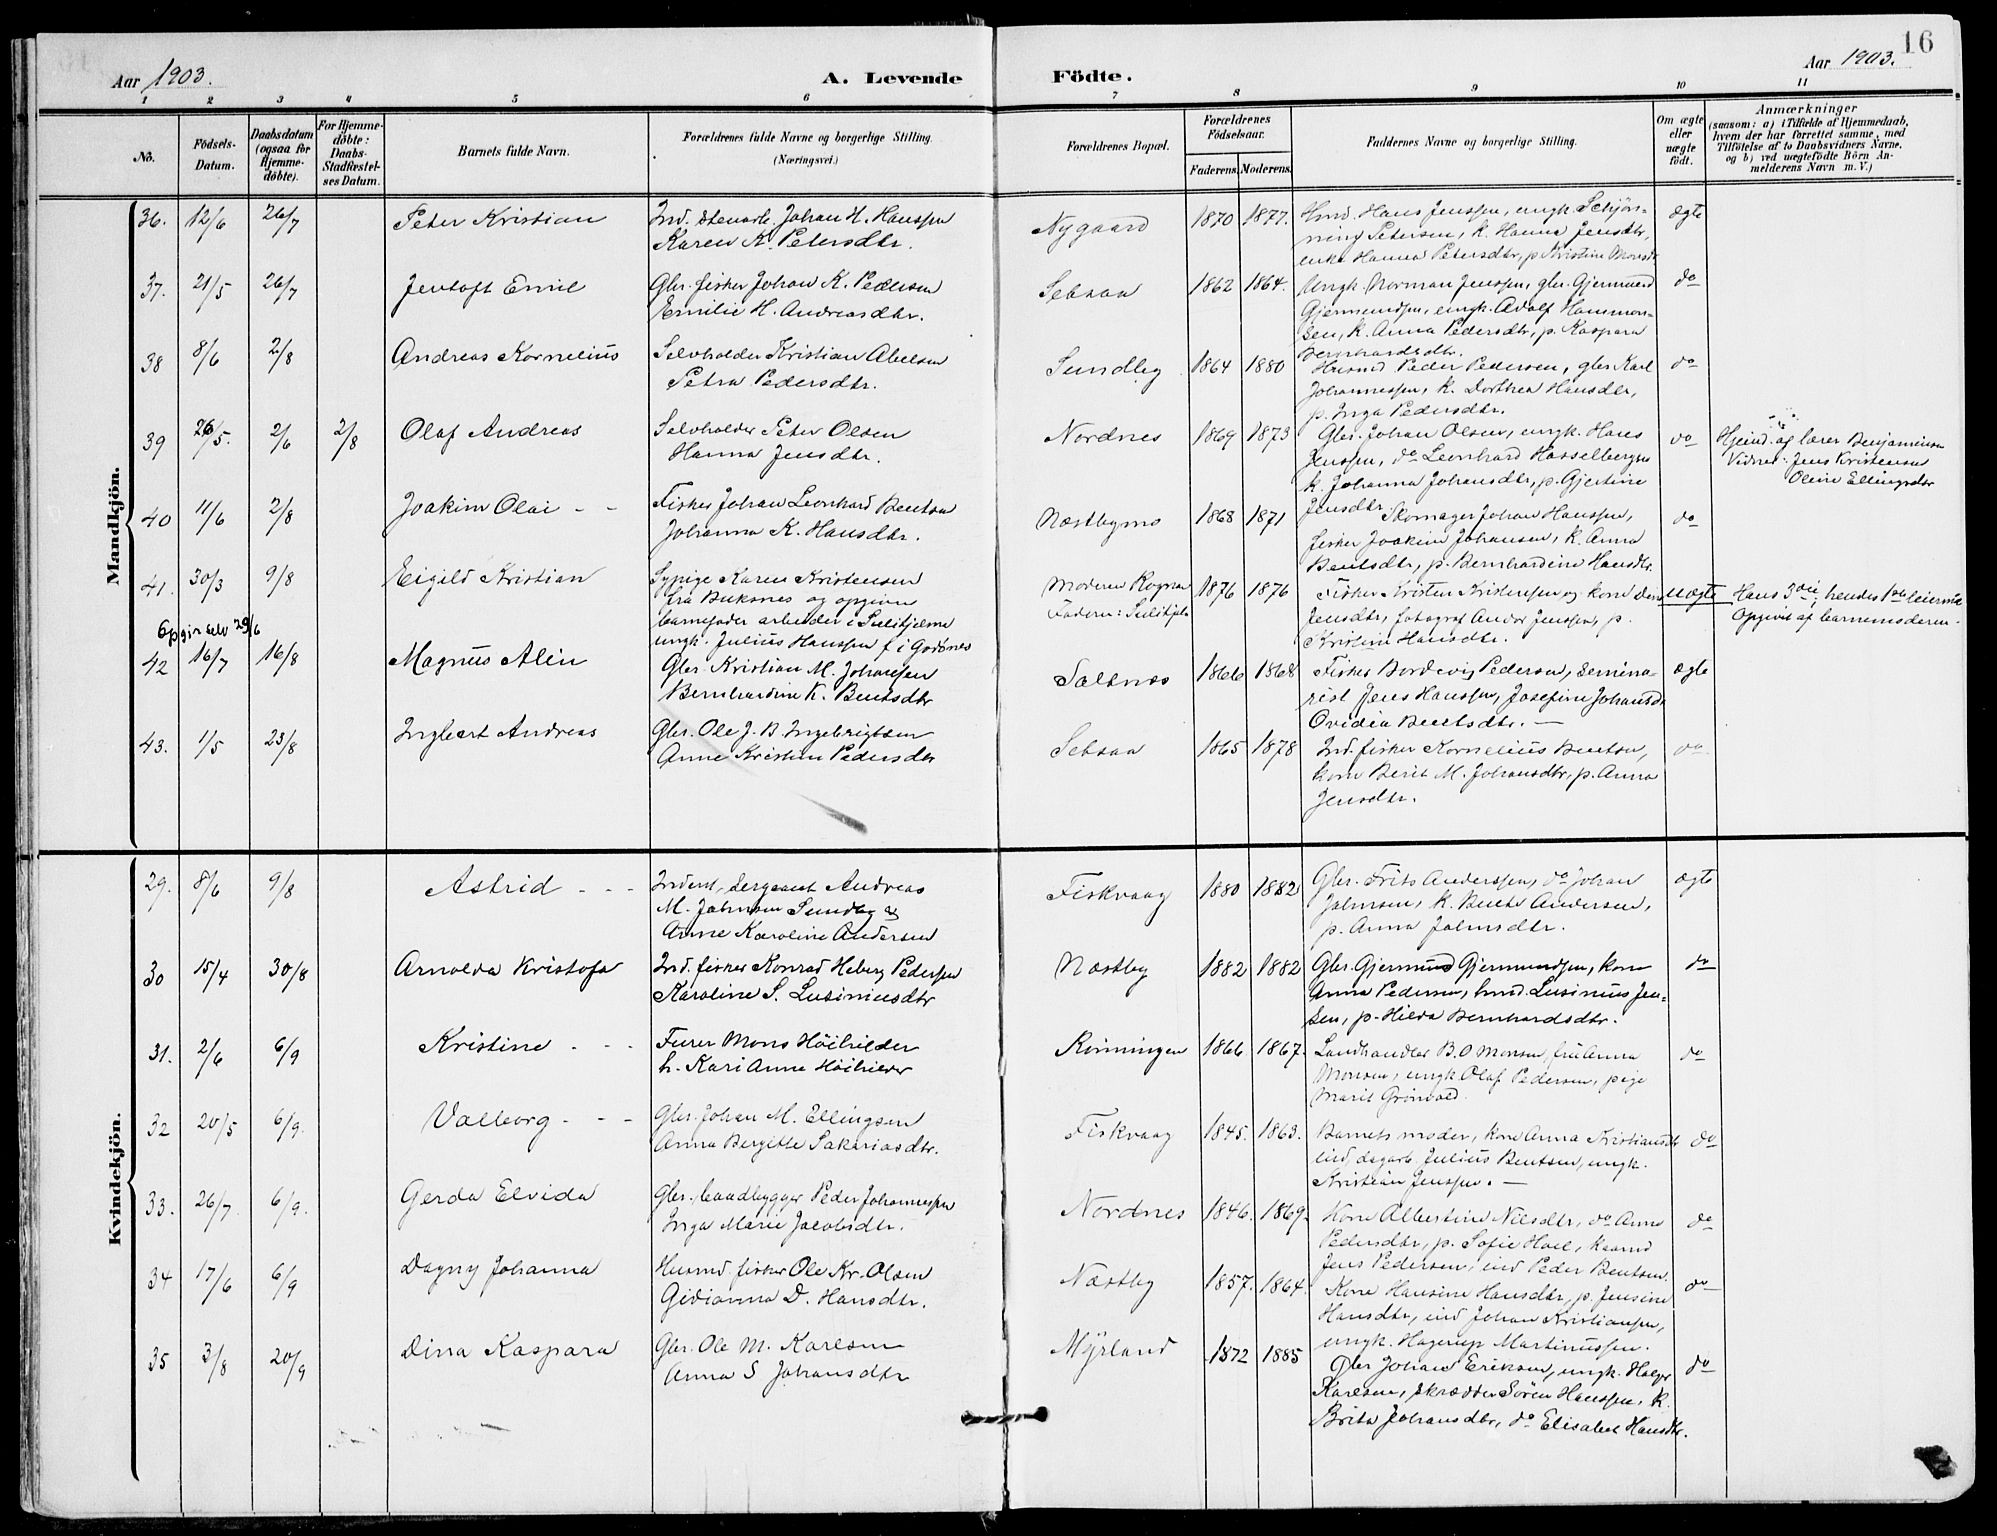 Aar 1903. A. Levende Födte. Aar 1903. 16
1 2 3 4 5 6 7 8 9 10 11
No.
Födsels-
Datum.
Daabsdatum
(ogsaa for
Hjemme-
döbte).
For Hjemme-
döbte:
Daabs-
Stadfæstel-
ses Datum.
Barnets fulde Navn.
Forældrenes fulde Navne og borgerlige Stilling.
(Næringsvei.)
Forældrenes Bopæl.
Forældrenes
Födselsaar.
Faderens. Moderens.
Faddernes Navne og borgerlige Stilling.
Om ægte
eller
uægte
födt.
Anmærkninger
(saasom: a) i Tilfælde af Hjemmedaab,
hvem der har forrettet samme, med
Tilföielse af to Daabsvidners Navne,
og b) ved uægtefödte Börn An-
melderens Navn m. V.)
Mandkjön.
36. 12/6 26/7 Peter Kristian
Ind. stenarb. Johan H. Hanssen
Karen K. Petersdtr.
Nygaard 1870 1877.
Hmd. Hans Jenssen, ungk. Schjön-
ning Petersen, k. Hanna Jensdtr,
enke Hanna Petersdtr, p. Kristine Monsdtr
ægte
37. 21/5 26/7 Jentoft Emil
Gbr. fisker Johan K. Pedersen
Emilie H. Andreasdtr.
Setsaa 1862 1864.
Ungk. Norman Jenssen, gbr. Gjermund
Gjermundsen, ungk. Adolf Hansmon-
sen, k. Anna Pedersdtr, p. Kaspara
Bernhardsdtr.
do
38 8/6 2/8 Andreas Kornelius
Selvholder Kristian Abelsen
Petra Pedersdtr.
Sundby 1864 1880
Husmd Peder Pedersen, gbr Karl
Johannessen, k. Dorthea Hansdtr,
p. Inga Pedersdtr.
do
39 26/5. 2/6 2/8 Olaf Andreas
Selvholder Peter Olsen
Hanna Jensdtr.
Nordnes 1869 1873
Gbr. Johan Olsen, ungk. Hans
Jenssen, do Leonhard Hasselbergsen
k. Johanna Johansdtr, p. Gjertine
Jensdtr.
do
Hjemd. af lærer Benjaminsen
Vidner: Jens Kristensen
Oline Ellingsdtr
40 11/6 2/8 Joakim Olai - -
Fisker Johan Leonhard Bentsen
Johanna K. Hansdtr.
Næstbymo 1868 1871
Skomager Johan Hanssen,
fisker Joakim Johansen, k. Anna
Bentsdtr, p. Bernhardine Hansdtr.
do
41. 30/3 9/8 Eigild Kristian
Sypige Karen Kristensen
fra Buksnes og opgiven
barnefader arbeider i Sulitjelma
ungk. Julius Hanssen f. i Godönes
Moderen Rognan
Faderen: Sulitjelm
1876 1876
Fisker Kristen Kristensen og kone
Jensdtr, fotograf Andor Jenssen, p.
Kristine Hansdtr.
uægte
Hans 3die, hendes 1ste leiermaal
Opgivet af barnemoderen.
Opgir selv 29/6
42 16/7 16/8 Magnus Alin
Gbr. Kristian M. Johansen
Bernhardine K. Bentsdtr
Saltnes 1866 1868
Fisker Bordevig Pedersen, semina-
rist Jens Hanssen, Josefine Johansdtr
Ovidia Bentsdtr. —
ægte
43. 1/5 23/8 Ingbert Andreas
Gbr. Ole J. B. Ingebrigtsen
Anne Kristine Pedersdtr
Setsaa 1865 1878
Ind. fisker Kornelius Bentsen,
kone Berit M. Johansdtr, p. Anna
Jensdtr.
do.
Kvindekjön.
29. 8/6 9/8 Astrid - - -
Inderst, Sergeant Andreas
M. Jahnsen Sundby og
Anne Karoline Andersen
Fiskvaag 1880 1882
Gbr. Frits Anderssen, do Johan
Jahnsen, k. Andersen,
p. Anna Jahnsdtr.
ægte
30 15/4 30/8 Arnolda Kristofa
Ind. fisker Konrad Heberg Pedersen
Karoline S. Lusiniusdtr
Næstby 1882 1882
Gbr. Gjermund Gjermundsen, kone
Anna Pedersen, hmd. Lusinius Jen-
sen, p. Hilda Bernhardsdtr.
do
31. 2/6 6/9 Kristine - - -
Furer Mons Höihilder
h. Kari Anne Höihilder
Rönningen 1866 1867.
Landhandler B. O Monsen, frü Anna
Monsen, ungk Olaf Pedersen, pige
Marit Grönvold.
do
32 20/5 6/9. Valborg - - -
Gbr. Johan M. Ellingsen
Anna Bergitte Sakariasdtr.
Fiskvaag 1845. 1863.
Barnets moder, kone Anna Kristiansdtr
ind, dagarb. Julius Bentsen, ungk.
Kristian Jenssen. —
do
33. 26/7 6/9. Gerda Elvida
Gbr. baadbygger Peder Johannessen
Inga Marie Jacobsdtr.
Nordnes 1846. 1869.
Kone Albertine Nilsdtr, do Anne
Pedersdtr, p. Sofie Hoel, kaarmd
Jens Pedersen, ind Peder Bentsen.
do
34 17/6 6/9 Dagny Johanna
Husmd. fisker Ole Kr. Olsen
Gidianna D. Hansdtr.
Næstby 1857. 1864.
Kone Hansine Hansdtr, p. Jensine
Hansdtr, ind Johan Kristiansen,
ungk. Hagerup Martinussen.
do
35 3/8 20/9 Dina Kaspara
Gbr. Ole M. Karlsen
Anna S Johansdtr
Myrland 1872 1885
Gbr Johan Eriksen, ungk. Holger
Karlsen, skrædder Sören Hanssen, k.
Brita Johansdtr, do Elisabet Hansdtr.
do